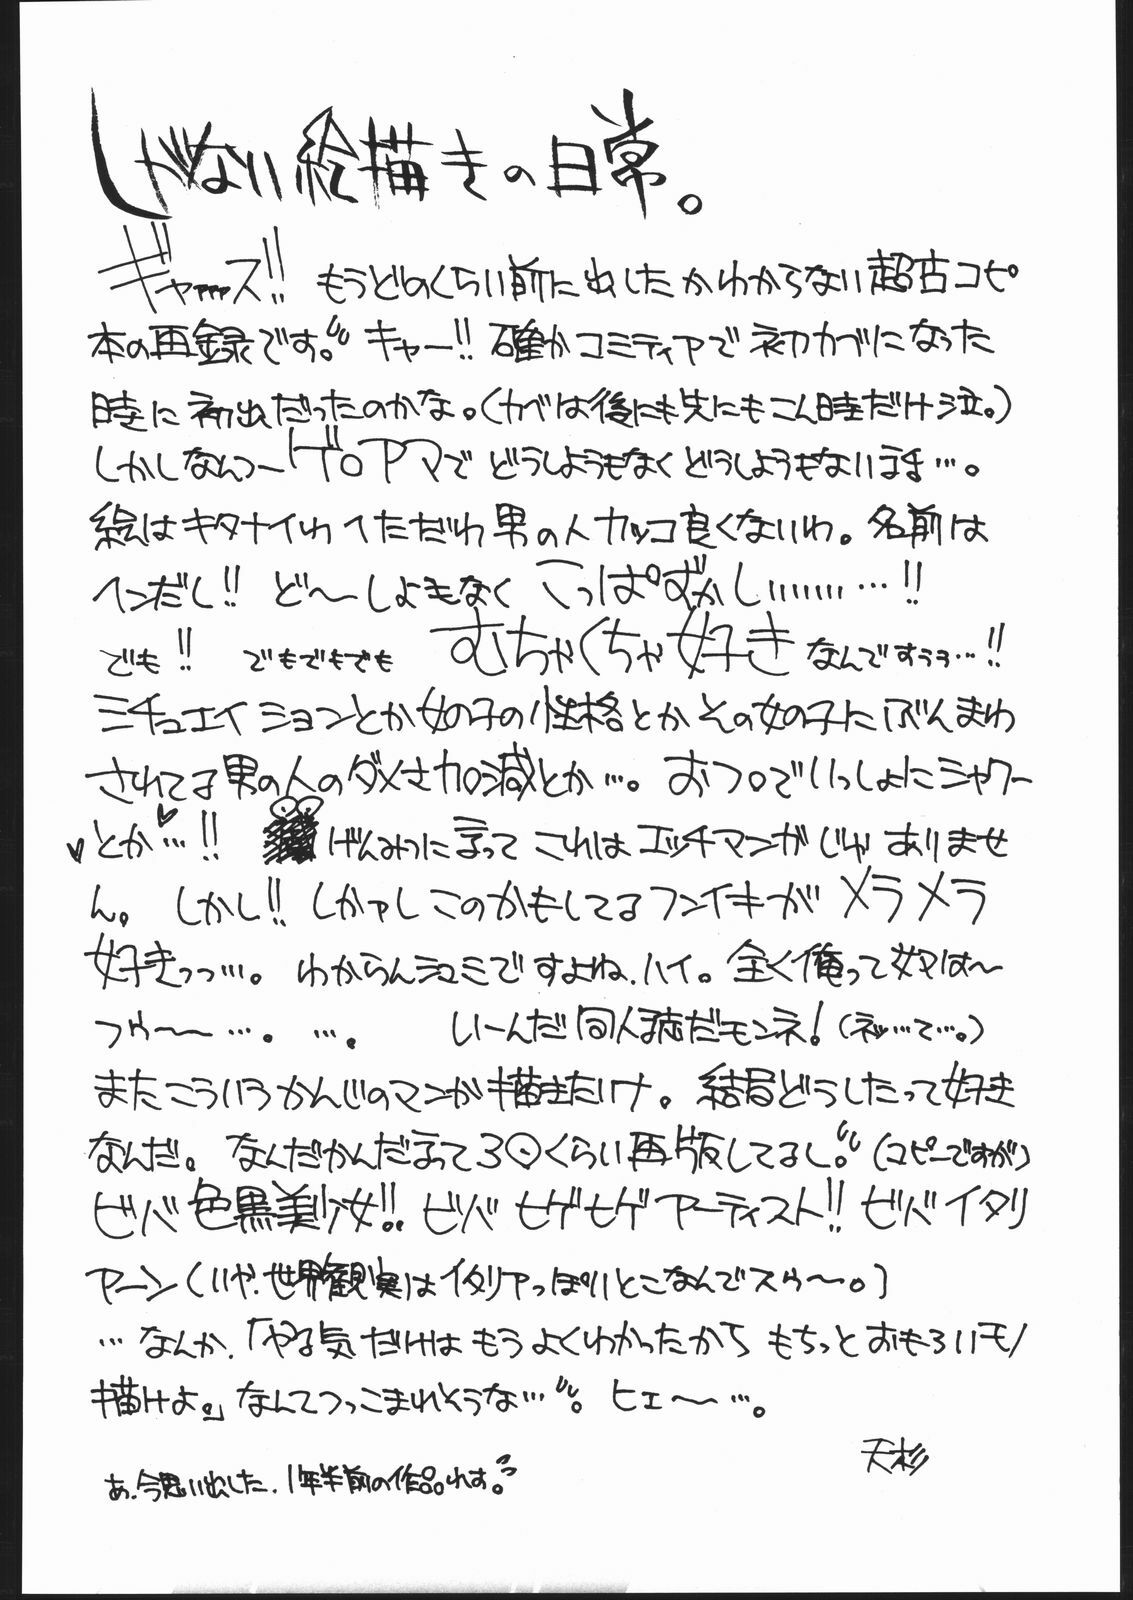 しがない絵描きの日常。
ギャアアアス!! もうどのくらい前に出したかわからない超古コピ
本の再録です。 キャー!! 確かコミティアで初カブになった
時に初出だったのかな。(カベは後にも先にもこん時だけ泣。)
しかしなんつーゲロアマでどうしようもなくどうしようもない話…。
絵はキタナイわヘただわ男の人カッコ良くないわ。名前は
ヘンだし!! ど〜しよもなく こっぱずかし………!!
でも!! でもでもでも むちゃくちゃ好きなんですぅぅ…!!
シチュエイションとか女の子の性格とかその女の子にぶんまわ
されてる男の人のダメさ加減とか…。おフロでいっしょにシャワー
とか…!! げんみつに言ってこれはエッチマンガじゃありませ
ん。しかし!! しかァしこのかもしてるフンイキがメラメラ
好きっっ…。わからんシュミですよね、ハイ。全く俺って奴は〜
フゥ〜〜…。…。 いーんだ同人誌だモンネ!(ネッ…て…。)
またこういうかんじのマンガ描きたいナ。結局どうしたって好き
なんだ。なんだかんだ言って30くらい再版してるし。(コピーですが)
ビバ色黒美少女!! ビバヒゲヒゲアーティスト!! ビバイタリ
アーン(いや、世界観実はイタリアっぽいとこなんでスゥ〜。)
…なんか、「やる気だけはもうよくわかったからもちっとおもろいモノ
描けよ。」なんてつっこまれそうな…。ヒェ〜…。
天杉
あ、今思い出した、1年半前の作品れす。